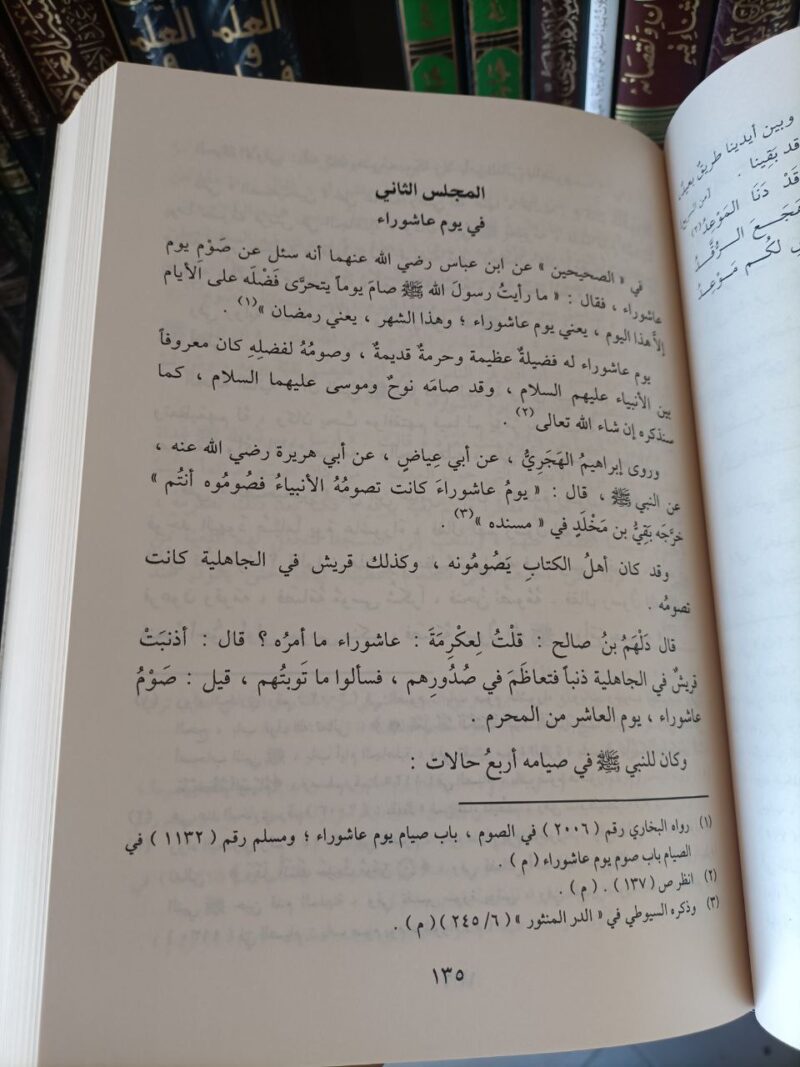 المجلس الثاني
في يوم عاشوراء
في « الصحيحين » عن ابن عباس رضي الله عنهما أنه سئل عن صَوْمِ يوم
عاشوراء ، فقال : « ما رأيتُ رسولَ الله ﷺ صامَ يوماً يتحرَّى فَضْلَه على الأيام
إلاَّ هذا اليوم ، يعني يوم عاشوراء ؛ وهذا الشهر ، يعني رمضان »(١) .
يوم عاشوراء له فضيلةٌ عظيمة وحرمةٌ قديمةٌ ، وصومُهُ لفضلِهِ كان معروفاً
بين الأنبياء عليهم السلام ، وقد صامَه نوحٌ وموسى عليهما السلام ، كما
سنذكره إن شاء الله تعالى(٢) .
وروى إبراهيمُ الهَجَرِيُّ ، عن أبي عِياضٍ ، عن أبي هريرة رضي الله عنه ،
عن النبي ﷺ ، قال : « يومُ عاشوراءَ كانت تصومُهُ الأنبياءُ فصُومُوه أنتُم »
خرَّجَه بَقِيُّ بن مَخْلَدٍ في « مسنده »(٣) .
وقد كان أهلُ الكتابِ يَصُومُونه ، وكذلك قريش في الجاهلية كانت
تصومُه .
قال دَلْهَمُ بنُ صالحٍ : قلْتُ لِعكْرِمَةَ : عاشوراء ما أمرُه ؟ قال : أذنبَتْ
قريشٌ في الجاهلية ذنباً فتعاظَمَ في صُدُورِهم ، فسألوا ما تَوبتُهم ، قيل : صَوْمُ
عاشوراء ، يوم العاشر من المحرم .
وكان للنبي ﷺ في صيامه أربعُ حالات :
(١) رواه البخاري رقم ( ٢٠٠٦ ) في الصوم ، باب صيام يوم عاشوراء ؛ ومسلم رقم ( ١١٣٢ ) في
الصيام باب صوم يوم عاشوراء ( م ) .
(٢) انظر ص ( ١٣٧ ) . ( م ) .
(٣) وذكره السيوطي في « الدر المنثور » ( ٦/ ٢٤٥ ) ( م ) .
١٣٥
وبين أيدينا طريقٌ بعيد
قد بَقِينا .
قَدْ دَنَا المَوْعِدُ(٢)
هَجَعَ الرُّقَّدُ
لكُم مَوْعِدُ